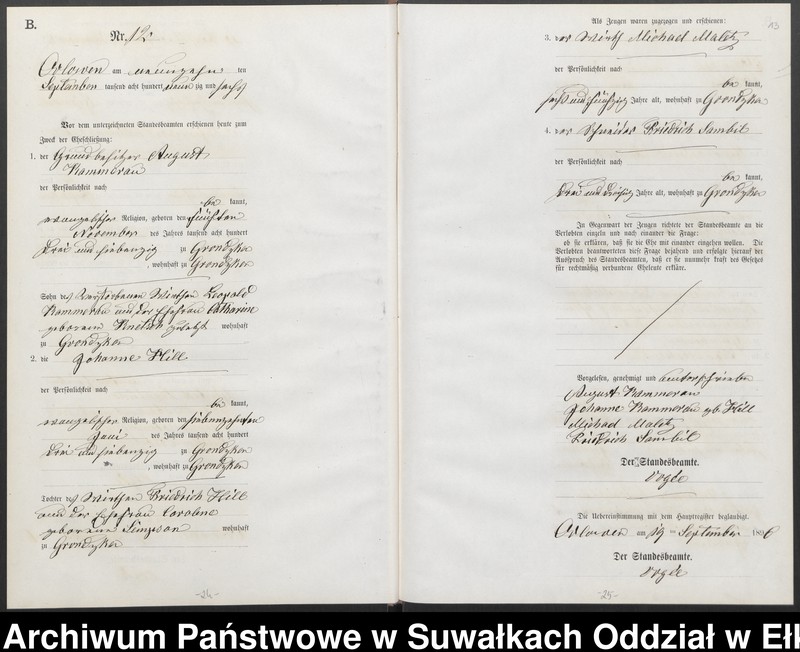 B.
Nr. 12.
Orlowen am neunzehn ten
September tausend acht hundert neun zig und sechs
Vor dem unterzeichneten Standesbeamten erschienen heute zum
Zweck der Eheschließung:
1. der Grundbesitzer August
Kammeran
der Persönlichkeit nach
be kannt,
evangelischer Religion, geboren den fünften
November des Jahres tausend acht hundert
drei und siebenzig zu Grondzken
, wohnhaft zu Grondzken
Sohn des verstorbenen Wirthen Leopold
Kammeran und der Ehefrau Catharine
geborenen wohnhaft
zu Grondzken
2. die Johanne Hill
der Persönlichkeit nach
be kannt,
evangelischer Religion, geboren den siebenzehnten
Juni des Jahres tausend acht hundert
drei und siebenzig zu Grondzken
, wohnhaft zu Grondzken
Tochter des Wirthen Friedrich Hill
und der Ehefrau Caroline
geborene wohnhaft
zu Grondzken
-24-
13
Als Zeugen waren zugezogen und erschienen:
3. der Wirth Michael Maletz
der Persönlichkeit nach
be kannt,
sechs und fünfzig Jahre alt, wohnhaft zu Grondzken
4. der Schneider Friedrich Sambil
der Persönlichkeit nach
be kannt,
drei und dreißig Jahre alt, wohnhaft zu Grondzken
In Gegenwart der Zeugen richtete der Standesbeamte an die
Verlobten einzeln und nach einander die Frage:
ob sie erklären, daß sie die Ehe mit einander eingehen wollen. Die
Verlobten beantworteten diese Frage bejahend und erfolgte hierauf der
Ausspruch des Standesbeamten, daß er sie nunmehr kraft des Gesetzes
für rechtmäßig verbundene Eheleute erkläre.
Vorgelesen, genehmigt und unterschrieben
August Kammeran
Johanne Kammeran gb. Hill
Michael Maletz
Friedrich Sambil
Der Standesbeamte.
Vogée
Die Uebereinstimmung mit dem Hauptregister beglaubigt.
Orlowen am 19 ten September 1896
Der Standesbeamte.
Vogée
-25-
Archiwum Państwowe w Suwałkach Oddział w Ełk